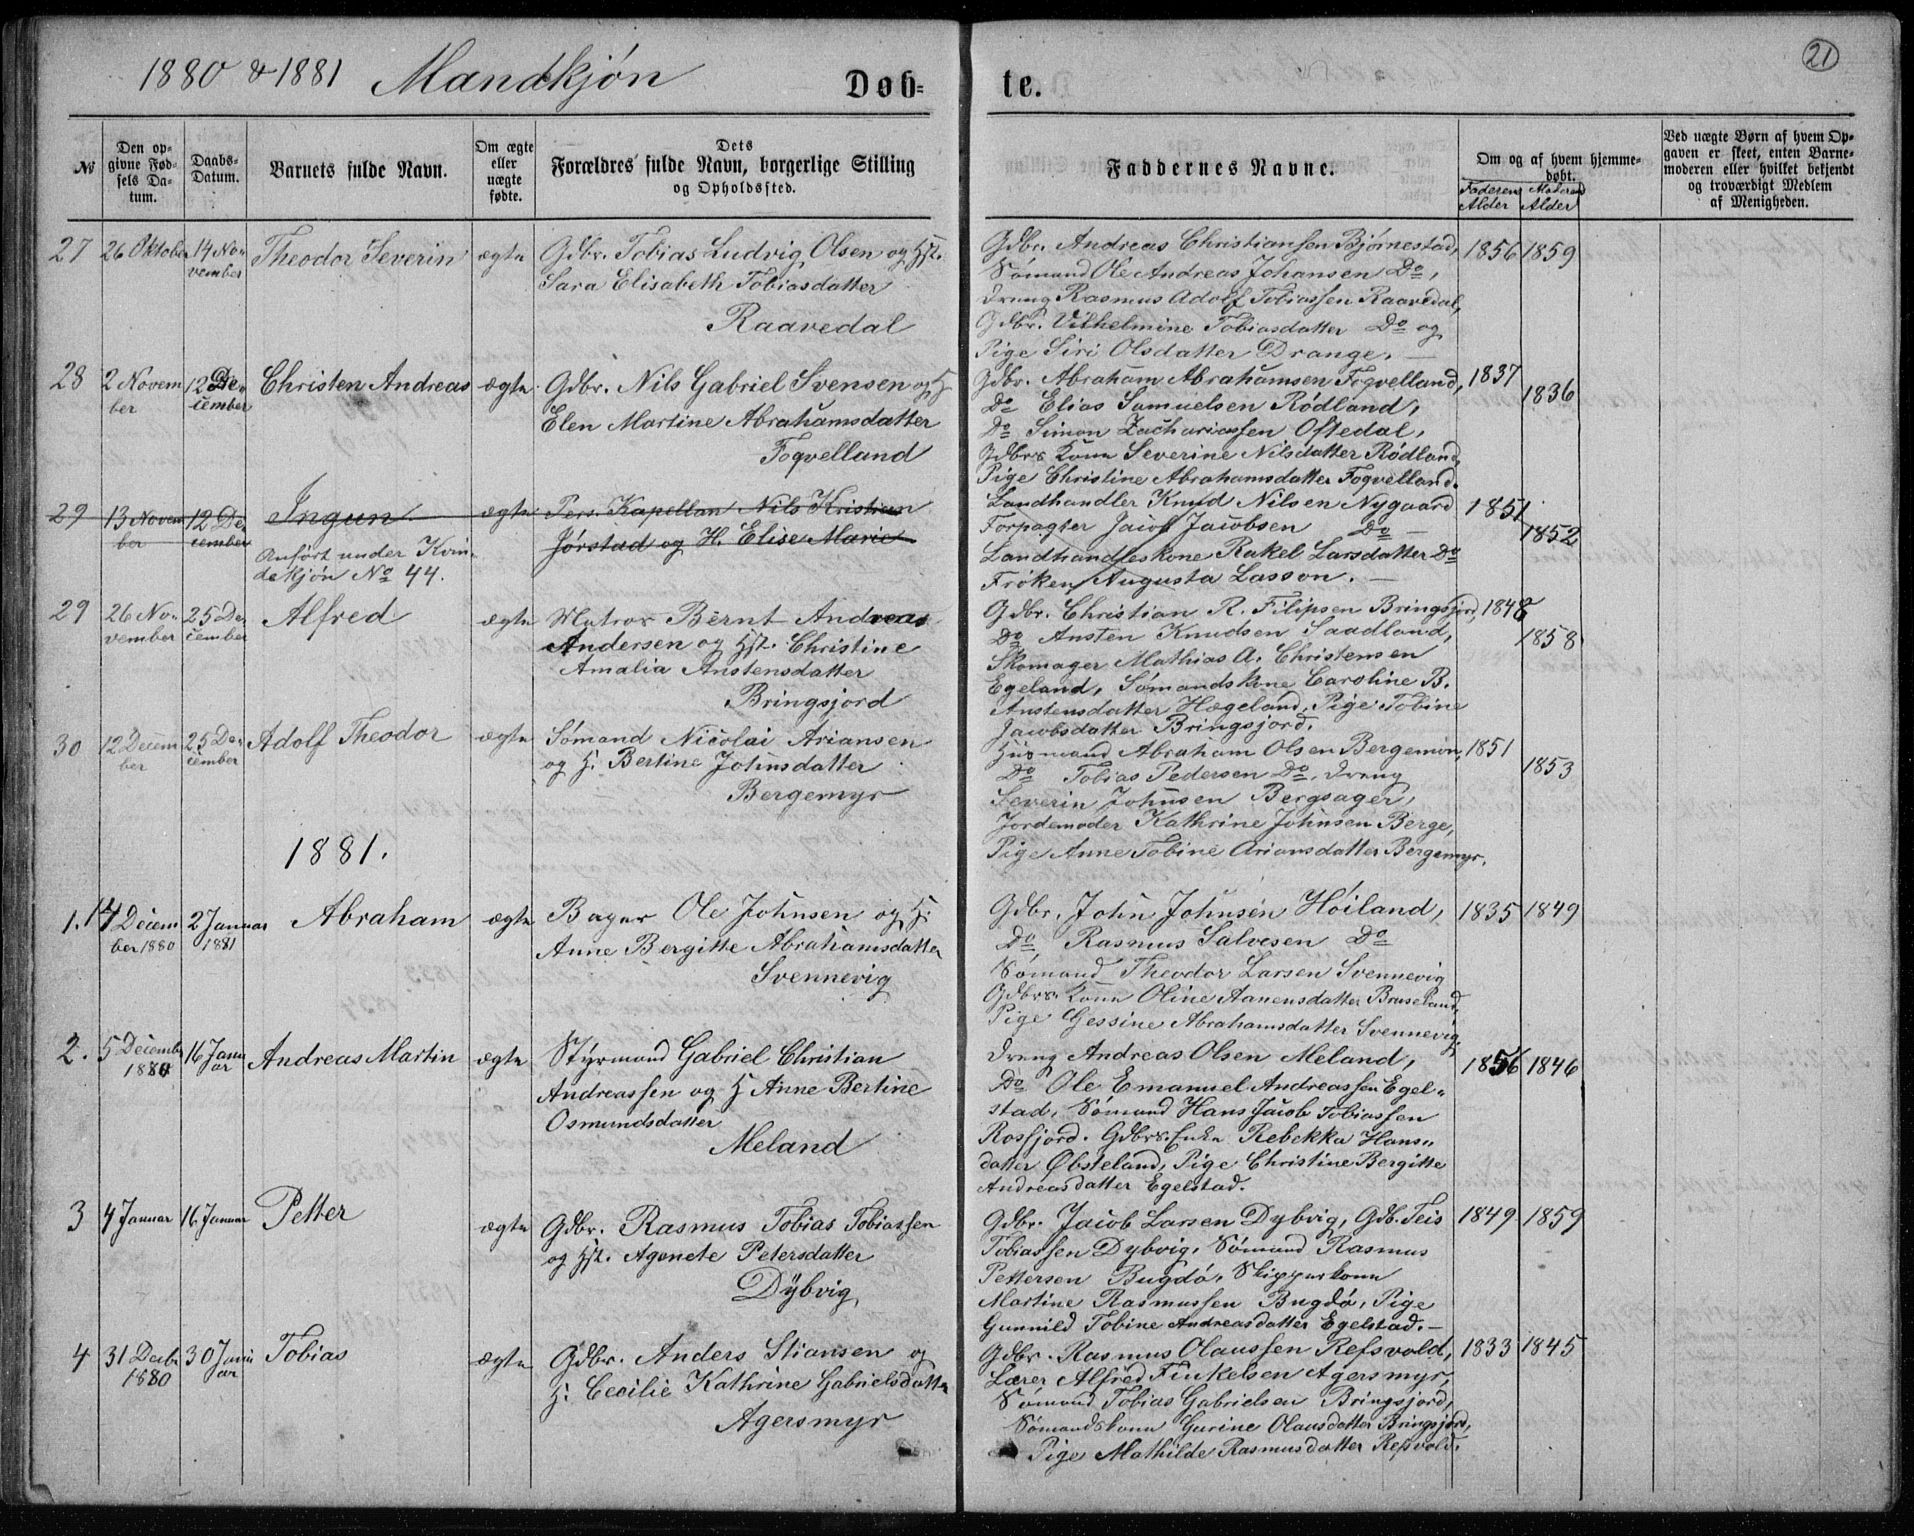 1880 & 1881 Mandkjøn Døb= te. 21
№
Den op-
givne Fød-
sels Da-
tum.
Daabs-
Datum.
Barnets fulde Navn.
Om ægte
eller
uægte
fødte.
Dets
Forældres fulde Navn, borgerlige Stilling
og Opholdssted.
Faddernes Navne.
Om og af hvem hjemme-
døbt.
Faderens
Alder
Moderens
Alder
Ved uægte Børn af hvem Op-
gaven er skeet, enten Barne-
moderen eller hvilket bekjendt
og troværdigt Medlem
af Menigheden.
27
26 Oktober
14 No-
vember
Theodor Severin
ægte
Gdbr. Tobias Ludvig Olsen og Hst.
Sara Elisabeth Tobiasdatter
Raavedal
Gdbr. Andreas Christiansen Bjørnestad,
Sømand Ole Andreas Johansen Do,
Dreng Rasmus Adolf Tobiassen Raavedal,
Gdbr. Vilhelmine Tobiasdatter Do og
Pige Siri Olsdatter Drange. —
1856
1859
28
2 Novem
ber
12 De-
cember
Christen Andreas
ægte
Gdbr. Nils Gabriel Svensen og H:
Elen Martine Abrahamsdatter
Fogvelland
Gdbr. Abraham Abrahamsen Fogvelland,
Do Elias Samuelsen Rødland,
Do Simon Zachariassen Oftedal,
Gdbrs Kone Severine Nilsdatter Rødland,
Pige Christine Abrahamsdatter Fogvelland.
1837
1836
29
13 Novem
ber
12 De-
cember
Ingun
Anført under Kvin-
dekjøn No 44.
ægte
Pers. Kapellan Nils Kristian
Jørstad og H. Elise Marie
Landhandler Knud Nilsen Nygaard
Forpagter Jacob Jacobsen Do —
Landhandleskone Rakel Larsdatter Do
Frøken Augusta Lasson. —
1851
1852
29
26 No-
vember
25 De-
cember
Alfred
ægte
Matros Bernt Andreas
Andersen og Hst. Christine
Amalia Anstensdatter
Bringsjord
Gdbr. Christian R. Filipsen Bringsjord,
Do Ansten Knudsen Saadland,
Skomager Mathias A. Christensen
Egeland, Sømandskone Caroline B.
Anstensdatter Hægeland, Pige Tobine
Jacobsdatter Bringsjord.
1848
1858
30
12 Decem
ber
25 De-
cember
Adolf Theodor
ægte
Sømand Nicolai Ariansen
og H: Bertine Johnsdatter
Bergemyr
Husmand Abraham Olsen Bergemyr,
Do Tobias Pedersen Do, Dreng
Severin Johnsen Bergsager,
Jordemoder Kathrine Johnsen Berge,
Pige Anne Tobine Ariansdatter Bergemyr.
1851
1853
1881.
1.
14 Decem
ber 1880
2 Januar
1881
Abraham
ægte
Bager Ole Johnsen og H:
Anne Bergitte Abrahamsdatter
Svennevig
Gdbr. John Johnsen Høiland,
Do Rasmus Salvesen Do
Sømand Theodor Larsen Svennevig
Gdbrs. Kone Oline Aanensdatter Bruseland,
Pige Gessine Abrahamsdatter Svennevig.
1835
1849
2.
5 December
1880
16 Janu
ar
Andreas Martin
ægte
Styrmand Gabriel Christian
Andreassen og H Anne Bertine
Osmundsdatter
Meland
Dreng Andreas Olsen Meland,
Do Ole Emanuel Andreassen Egel-
stad, Sømand Hans Jacob Tobiassen
Rosfjord. Gdbrs. Enke Rebekka Hans-
datter Øbsteland, Pige Christine Bergitte
Andreasdatter Egelstad.
1856
1846
3
4 Januar
16 Januar
Petter
ægte
Gdbr. Rasmus Tobias Tobiassen
og Hst. Agenete Petersdatter
Dybvig
Gdbr. Jacob Larsen Dybvig, Gdb. Teis
Tobiassen Dybvig, Sømand Rasmus
Pettersen Bugdø, Skipperkone
Martine Rasmussen Bugdø, Pige
Gunnild Tobine Andreasdatter Egelstad. —
1849
1859
4
31 Decbr
1880
30 Janu
ar
Tobias
ægte
Gdbr. Anders Stiansen og
H: Cecilie Kathrine Gabrielsdatter
Agersmyr
Gdbr. Rasmus Olaussen Refsvold,
Lærer Alfred Finkelsen Agersmyr,
Sømand Tobias Gabrielsen Bringsjord,
Sømandskone Gurine Olausdatter Bringsjord,
Pige Mathilde Rasmusdatter Refsvold.
1833
1845